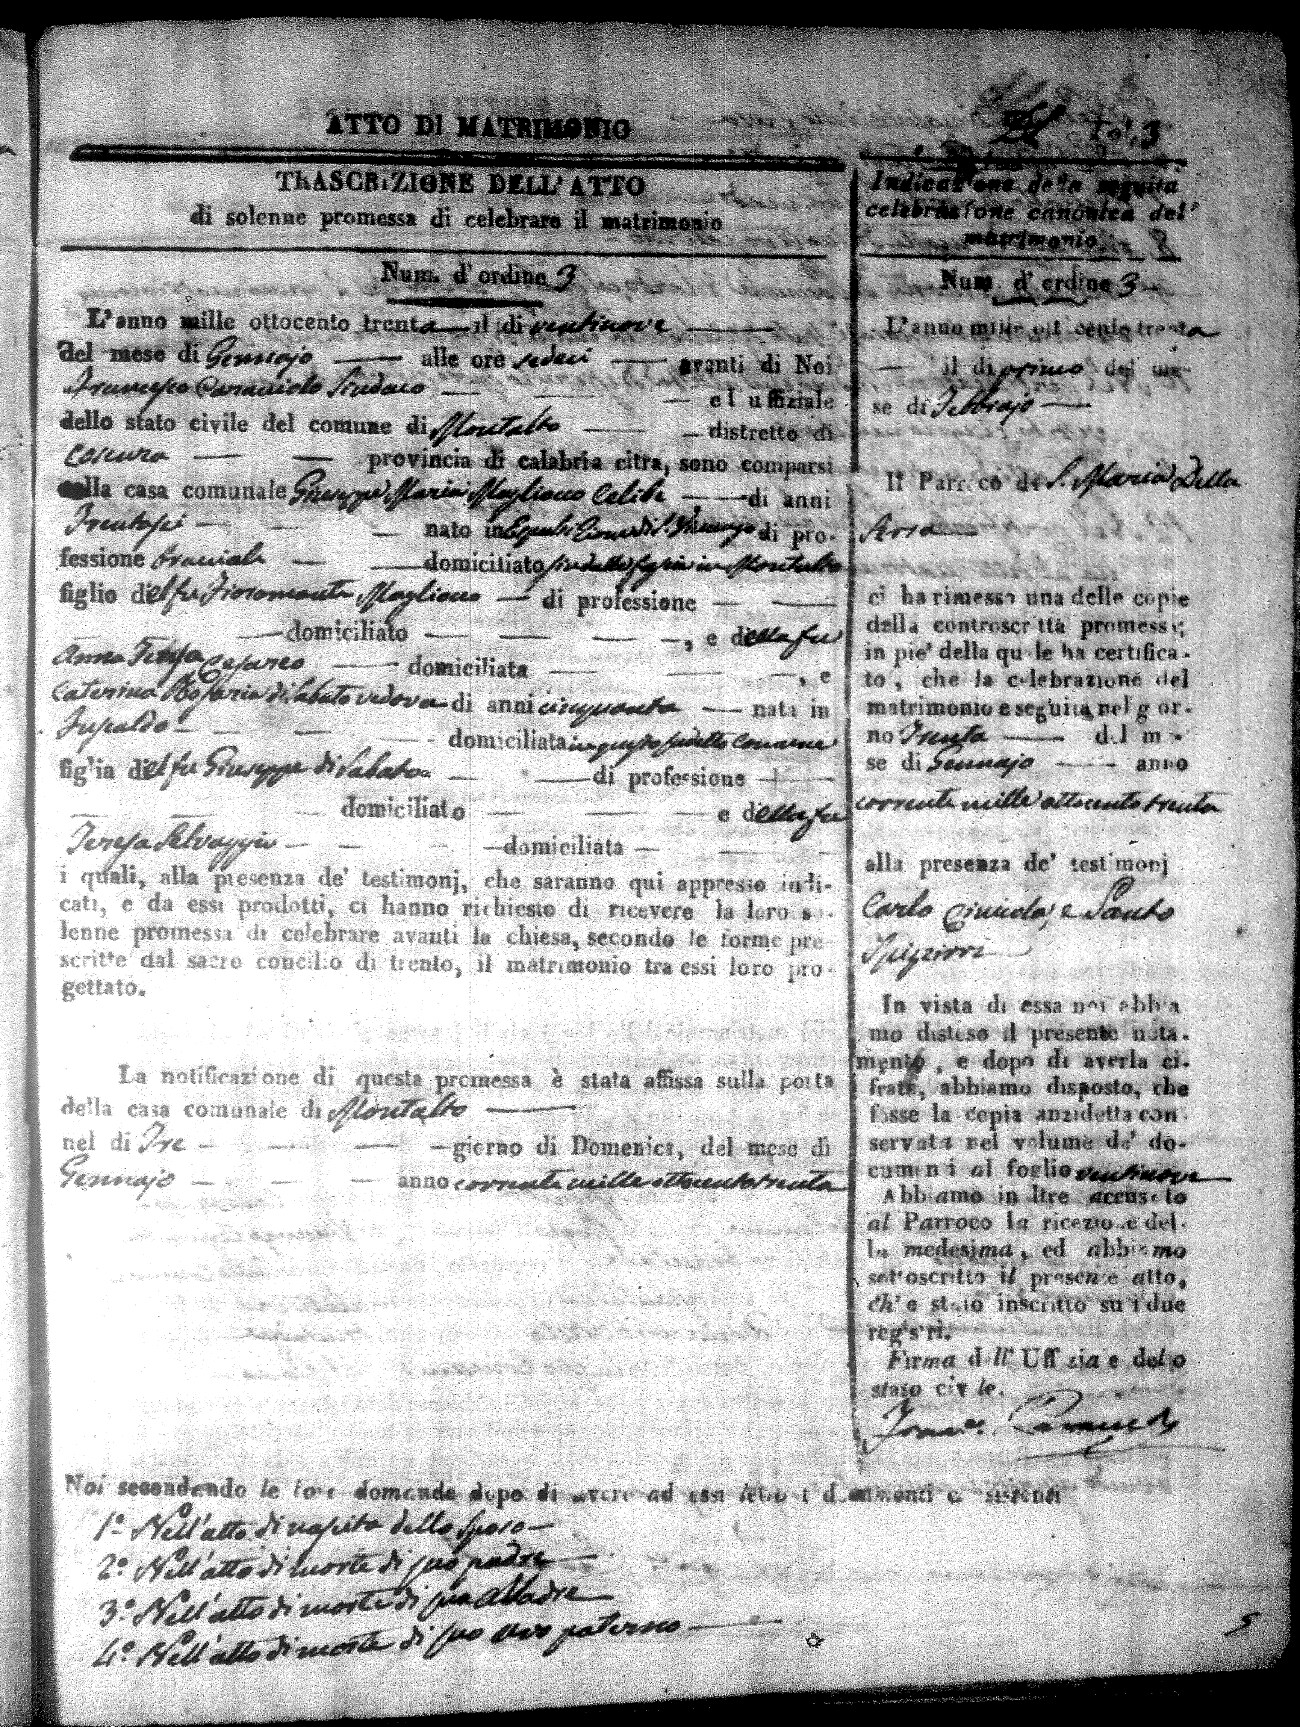 ATTO DI MATRIMONIO
Fol. 3
TRASCRIZIONE DELL'ATTO
di solenne promessa di celebrare il matrimonio
Num. d'ordine 3
L'anno mille ottocento trenta il di ventinove
del mese di Gennajo alle ore sedeci avanti di Noi
Francesco Caracciolo Sindaco ed uffiziale
dello stato civile del comune di Montalto distretto di
Cosenza provincia di calabria citra, sono comparsi
nella casa comunale Giuseppe Maria Magliocco Celibe di anni
Trentasei nato in di pro-
fessione bracciale domiciliato in Montalto
figlio del fu Fioromonte Magliocco di professione
domiciliato , e della fu
Anna Teresa domiciliata , e
Caterina Rosaria di Sabato vedova di anni cinquanta nata in
domiciliata in questo sudetto Comune
figlia del fu Giuseppe di Sabato di professione
domiciliato e della fu
Teresa Selvaggio domiciliata
i quali, alla presenza de' testimonj, che saranno qui appresso indi-
cati, e da essi prodotti, ci hanno richiesto di ricevere la loro so-
lenne promessa di celebrare avanti la chiesa, secondo le forme pre-
scritte dal sacro concilio di trento, il matrimonio tra essi loro pro-
gettato.
La notificazione di questa promessa è stata affissa sulla porta
della casa comunale di Montalto
nel di Tre giorno di Domenica, del mese di
Gennajo anno corrente mille ottocento trenta
Indicazione della seguita
celebrazione canonica del'
matrimonio.
Num. d'ordine 3
L'anno mille ottocento trenta
il di primo del me-
se di Febbrajo
Il Parroco di S. Maria Della
Serra
ci ha rimesso una delle copie
della controscritta promessa;
in pie' della quale ha certifica-
to, che la celebrazione del
matrimonio e seguita nel gior-
no Trenta del me-
se di Gennajo anno
corrente mille ottocento trenta
alla presenza de' testimonj
Carlo e Santo
In vista di essa noi abbia
mo disteso il presente nota-
mento, e dopo di averla ci-
frate, abbiamo disposto, che
fosse la copia anzidetta con-
servata nel volume de' do-
cumenti al foglio ventinove
Abbiamo inoltre accusato
al Parroco la ricezione del-
la medesima, ed abbiamo
sottoscritto il presente atto,
ch'e stato inscritto su i due
registri.
Firma dell' Uffiziale dello
stato civile.
Noi secondando le loro domande dopo di avere ad essi letto i documenti consistenti
1.° Nell'atto di nascita dello sposo
2.° Nell'atto di morte di suo padre
3.° Nell'atto di morte di sua Madre
4.° Nell'atto di morte di suo avo paterno